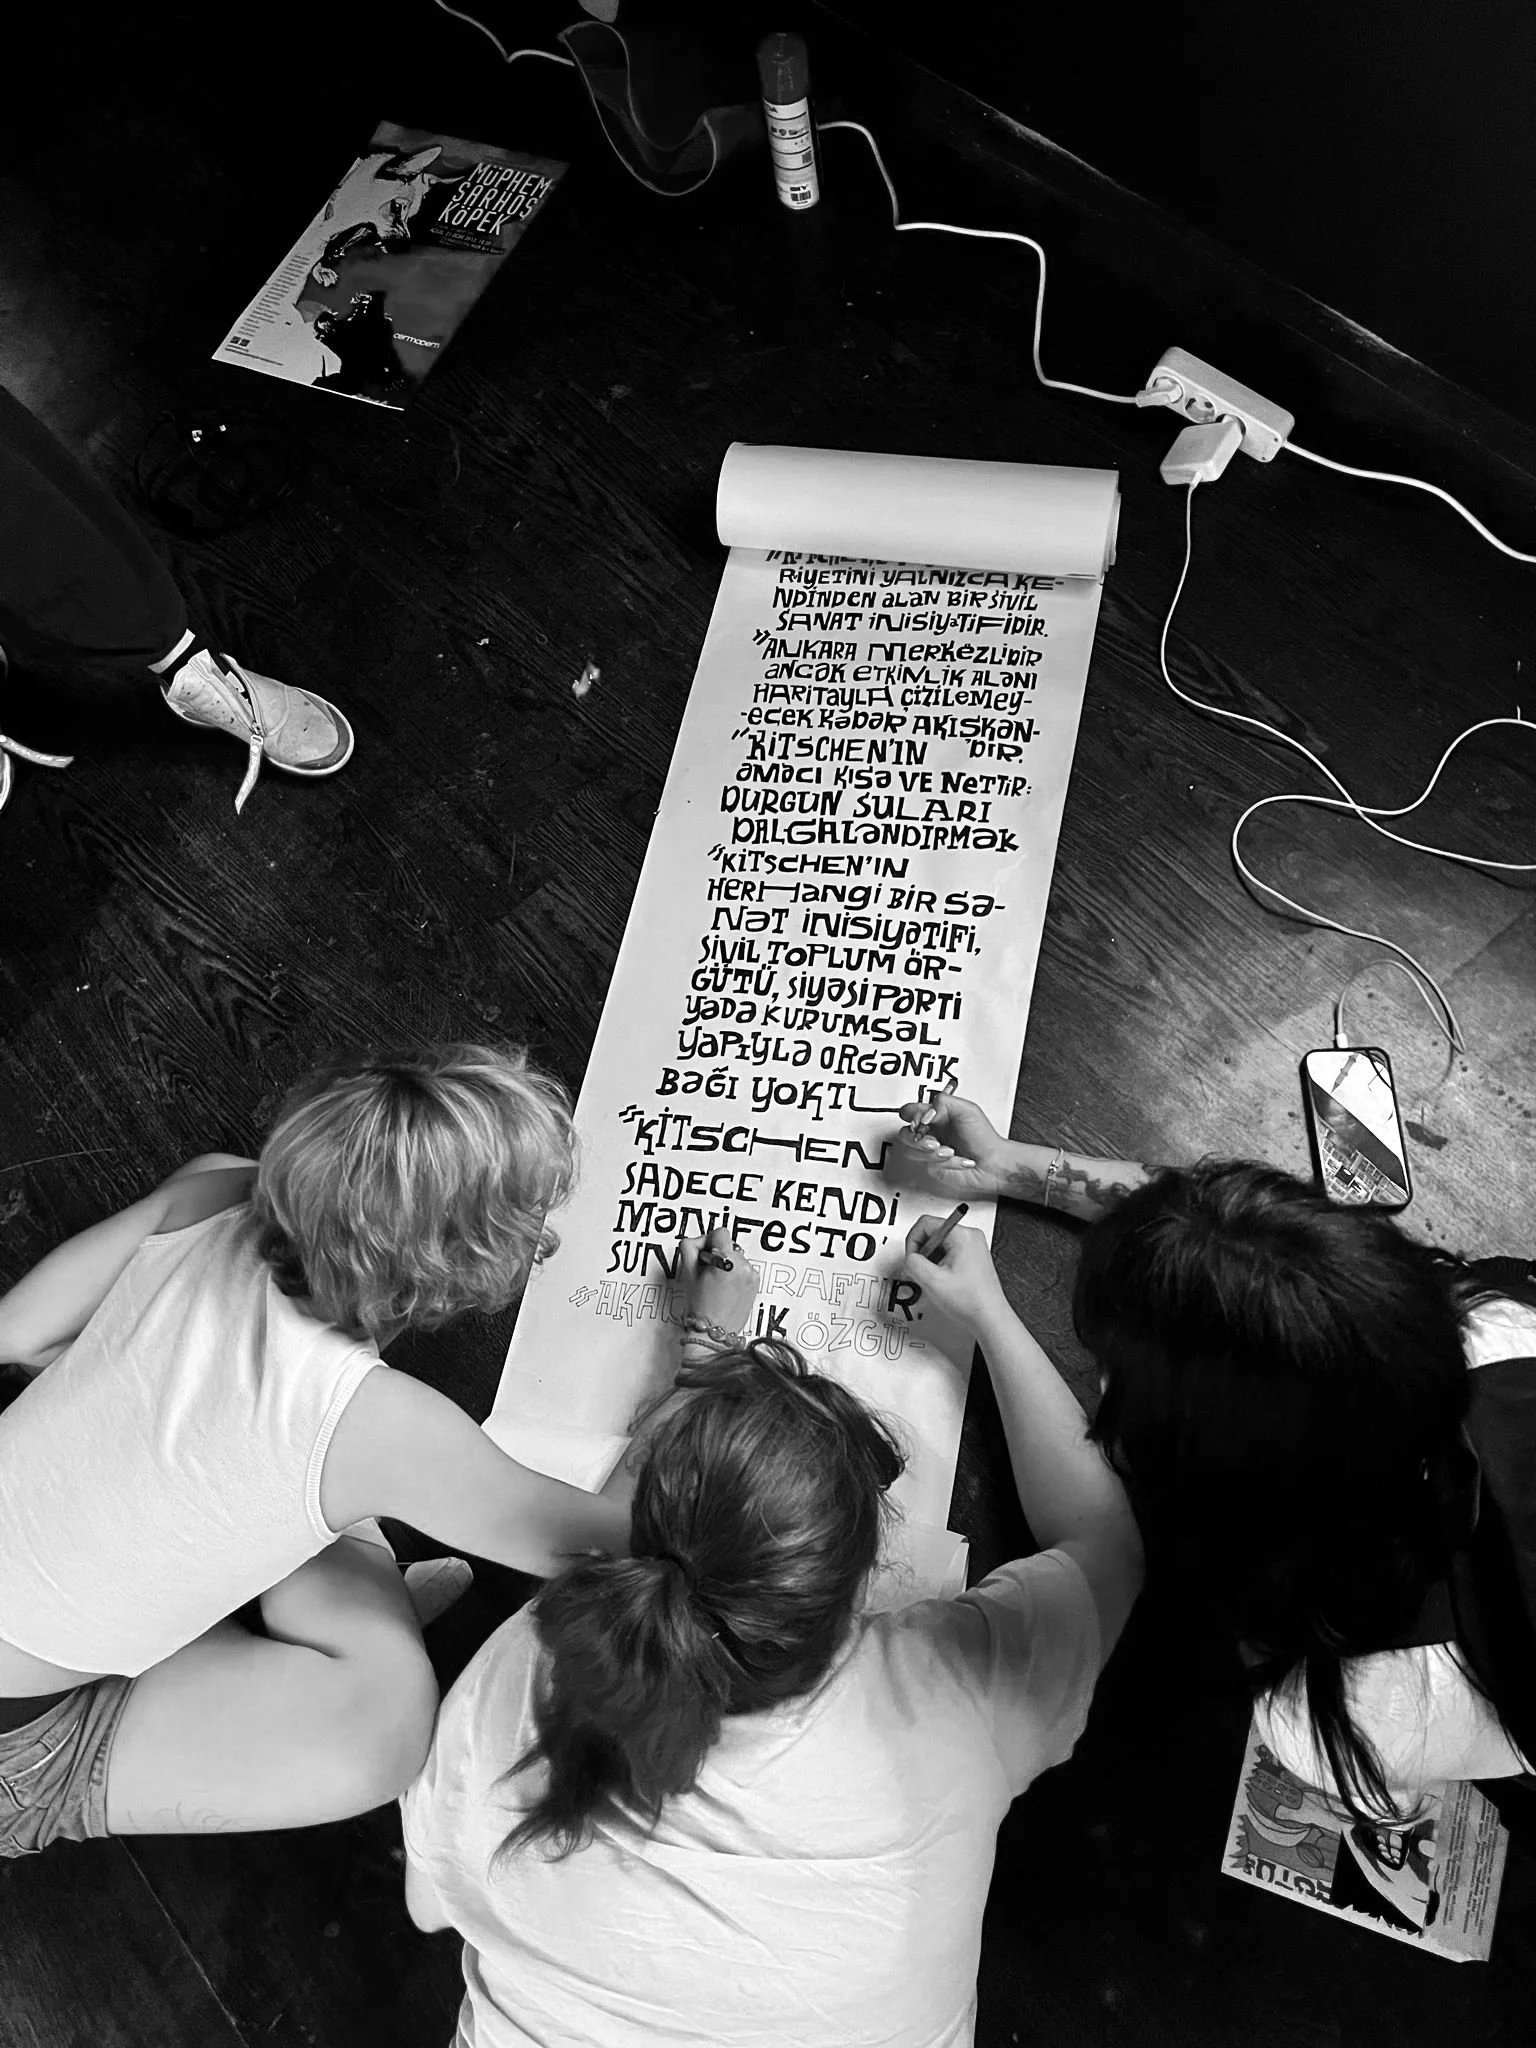 MÜPHEM
SARHOŞ
KÖPEK
cermodern
"KİTSCHEN
RİYETİNİ YALNIZCA KE-
NDİNDEN ALAN BİR SİVİL
SANAT İNİSİYATİFİDİR.
"ANKARA MERKEZLİDİR
ANCAK ETKİNLİK ALANI
HARİTAYLA ÇİZİLEMEY-
-ECEK KADAR AKIŞKAN-
DIR.
"KİTSCHEN'IN
AMACI KISA VE NETTİR:
DURGUN SULARI
DALGALANDIRMAK
"KİTSCHEN'IN
HERHANGİ BİR SA-
NAT İNİSİYATİFİ,
SİVİL TOPLUM ÖR-
GÜTÜ, SİYASİ PARTİ
YADA KURUMSAL
YAPIYLA ORGANİK
BAĞI YOKTU
"KİTSCHEN
SADECE KENDİ
MANİFESTO'
SUN ARAFTIR.
"AKA İK ÖZGÜ-